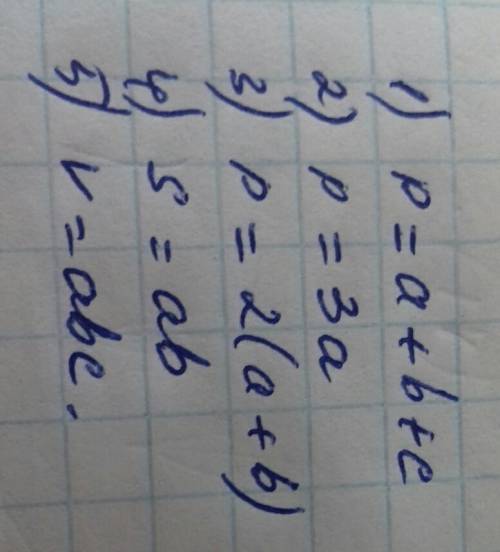 1) P = a + b + c
2) P = 3a
3) P = 2(a + b)
4) S = ab
5) V = abc.